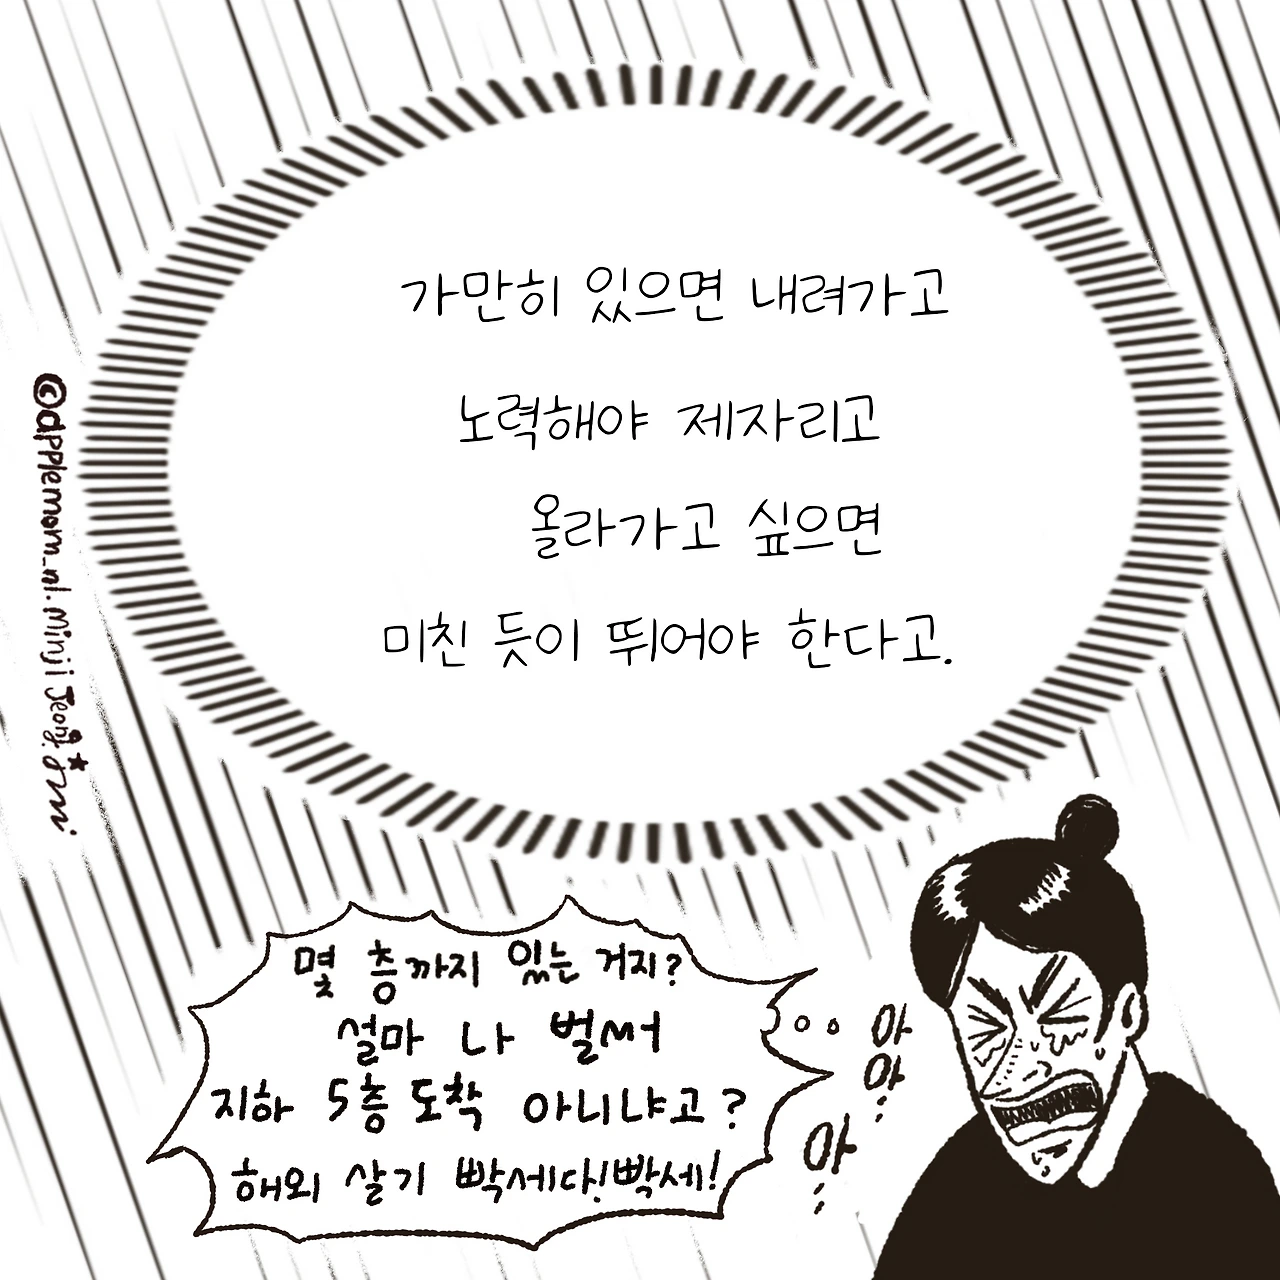 가만히 있으면 내려가고
노력해야 제자리고
올라가고 싶으면
미친 듯이 뛰어야 한다고.
©applemom_nl. Minji Jeong.
몇 층까지 있는 거지?
설마 나 벌써
지하 5층 도착 아니냐고?
해외 살기 빡세다! 빡세!
아
아..
아..